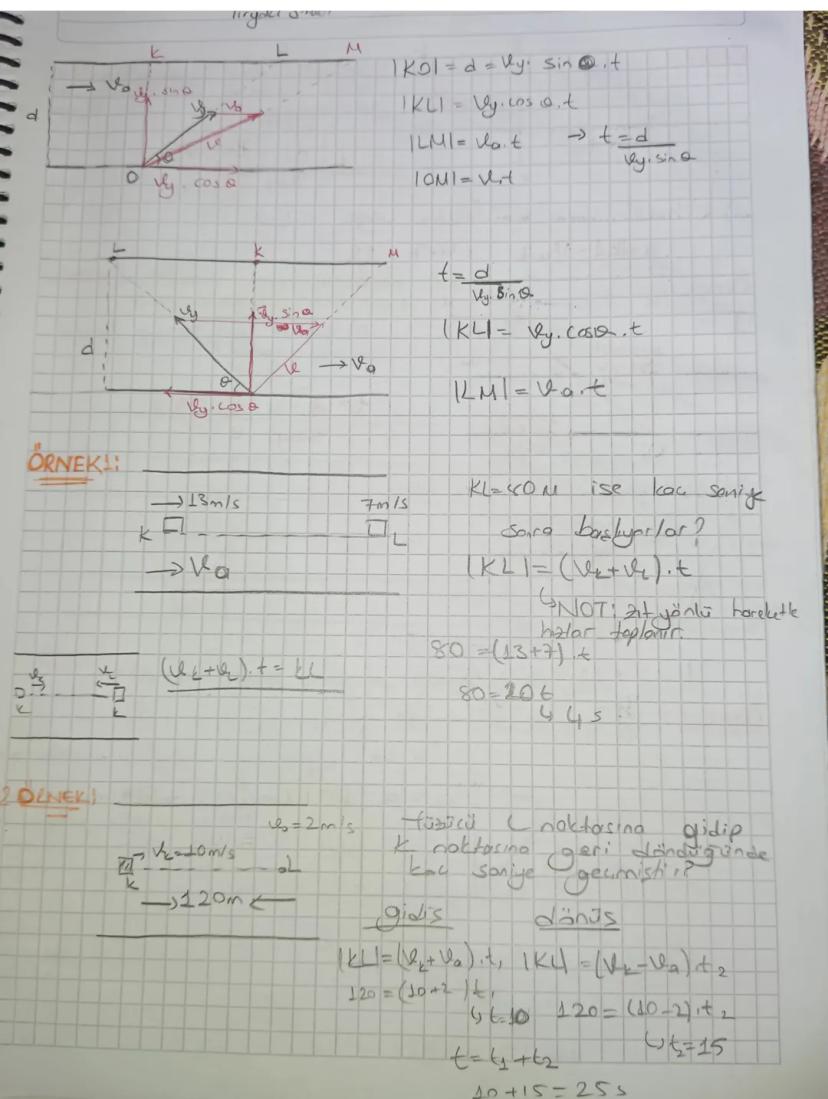 K L M
→ Va
Vy.sinθ
Vy Va
V
d
θ
O
Vy.cosθ
|KO| = d = Vy. sinθ.t
|KL| = Vy.cosθ.t
|LM| = Va.t → t = d / Vy.sinθ
|OM| = V.t
L K M
Vy
Vy.sinθ
Va
d
θ
V
→ Va
Vy.cosθ
t = d / Vy.Sinθ
|KL| = Vy.cosθ.t
|LM| = Va.t
ÖRNEK1:
→13m/s 7m/s
K L
→ Va
KL=80M ise kaç saniye
sonra başlıyorlar?
|KL| = (Vk+VL).t
↳NOT: zıt yönlü harekette
hızlar toplanır.
80 = (13+7).t
80 = 20t
↳ 4s.
Vk VL
K
(Vk+VL).t = KL
2 ÖRNEK:
Va=2m/s
→Vk=10m/s
K L
→120m←
Yüzücü L noktasına gidip
K noktasına geri döndüğünde
kaç saniye geçmiştir?
gidiş dönüş
|KL| = (Vk+Va).t1 |KL| = (Vk-Va)t2
120 = (10+2)t1
↳t=10 120 = (10-2).t2
↳t2=15
t = t1+t2
10+15 = 25s